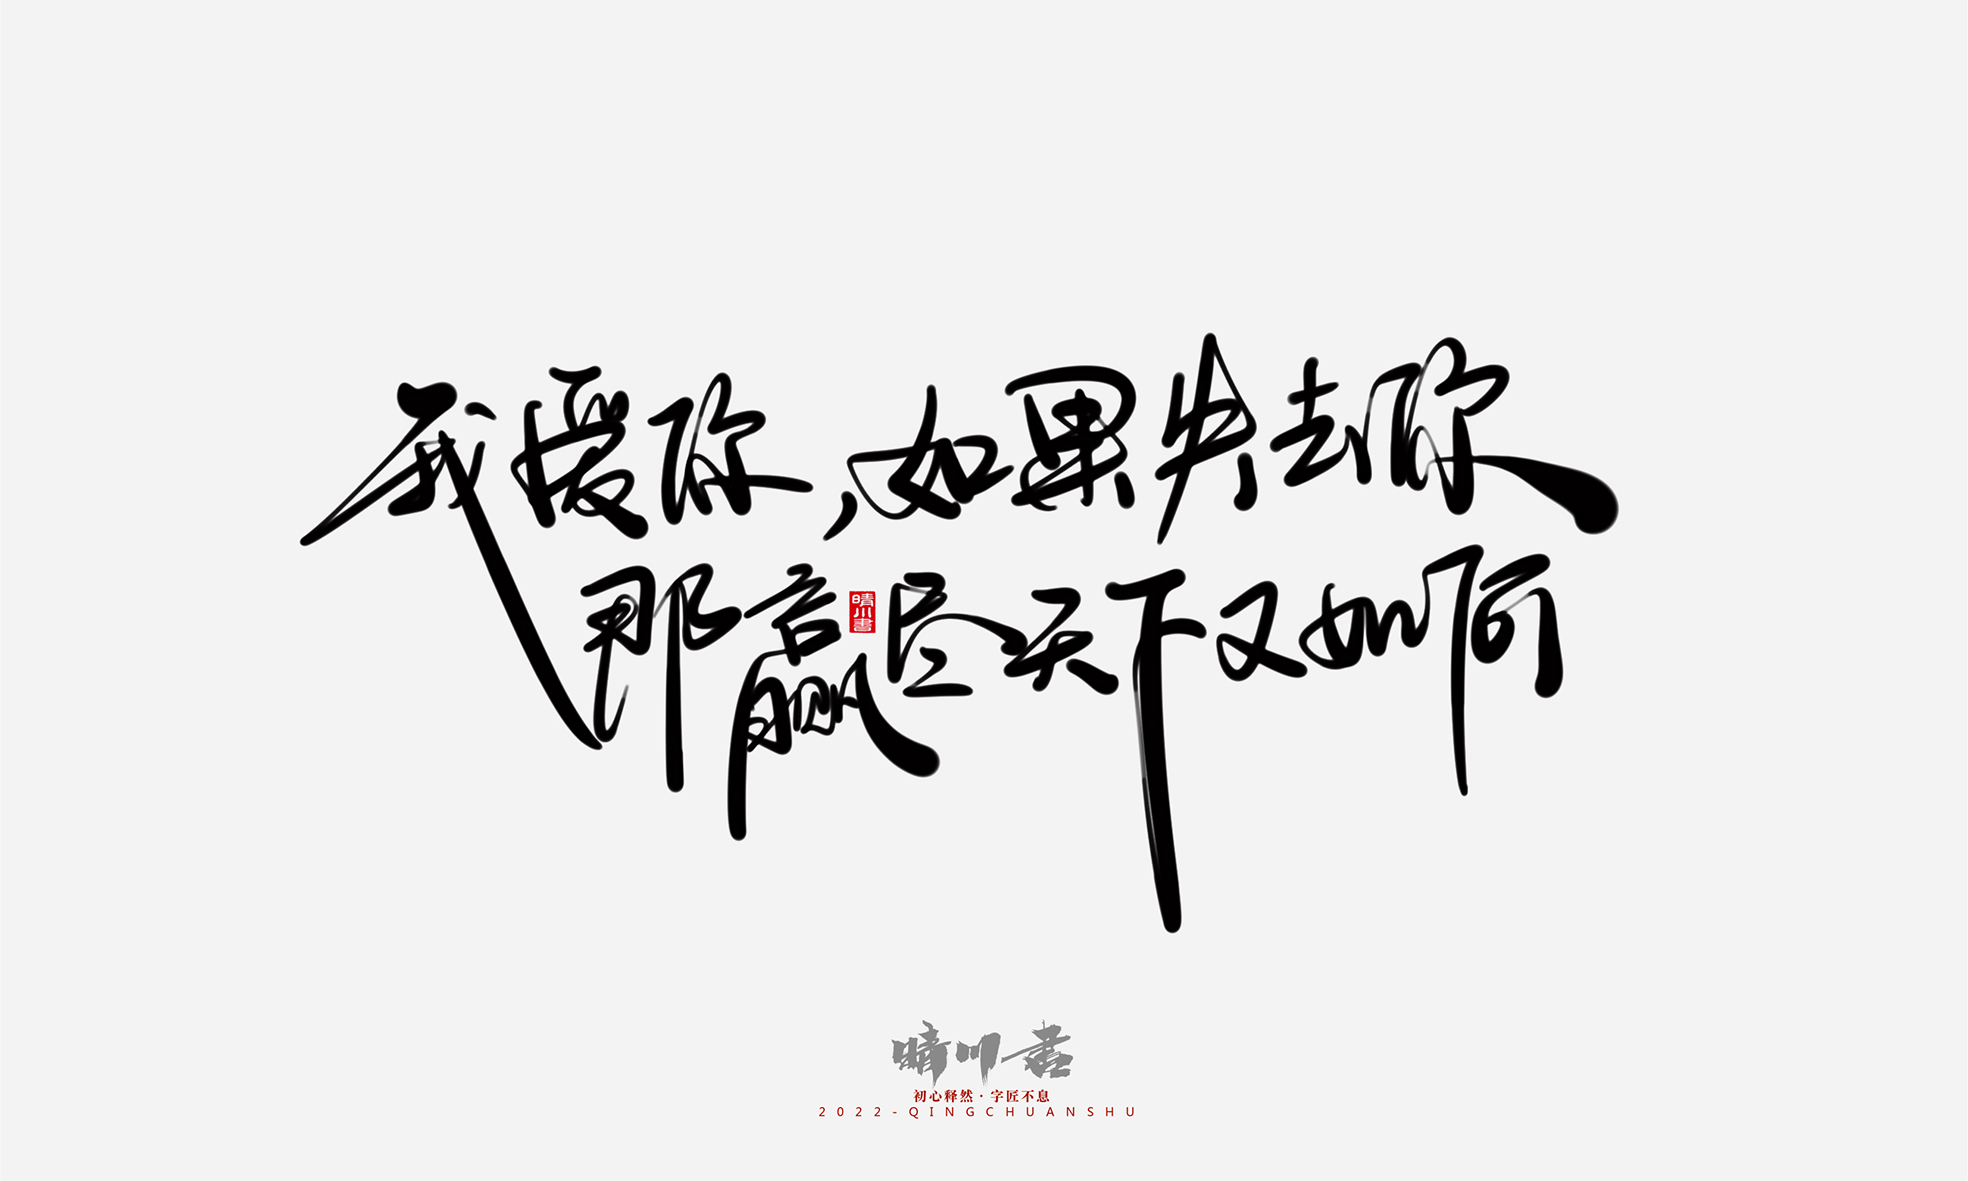 我爱你，如果失去你
那赢尽天下又如何
晴川書
晴川书
初心释然·字匠不息
2022-QINGCHUANSHU